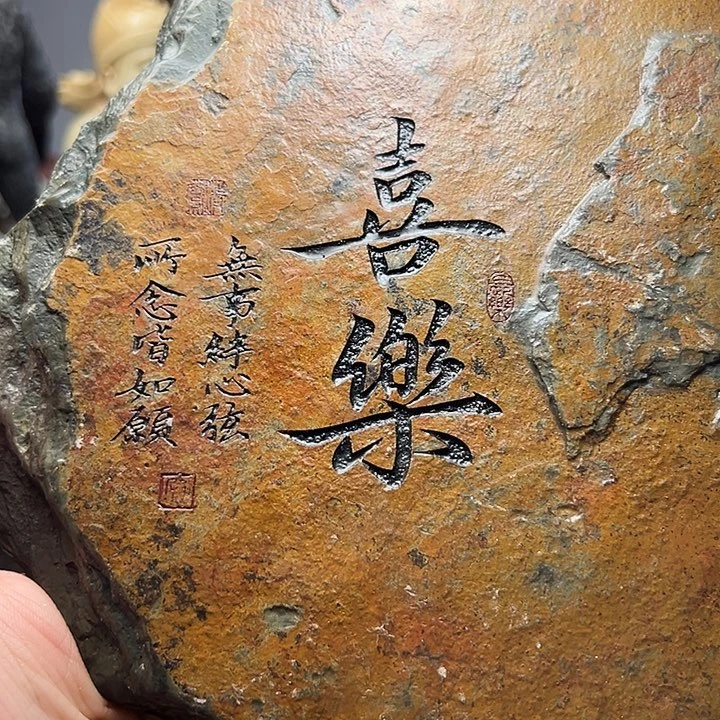 喜樂
無事絆心弦
所念皆如願